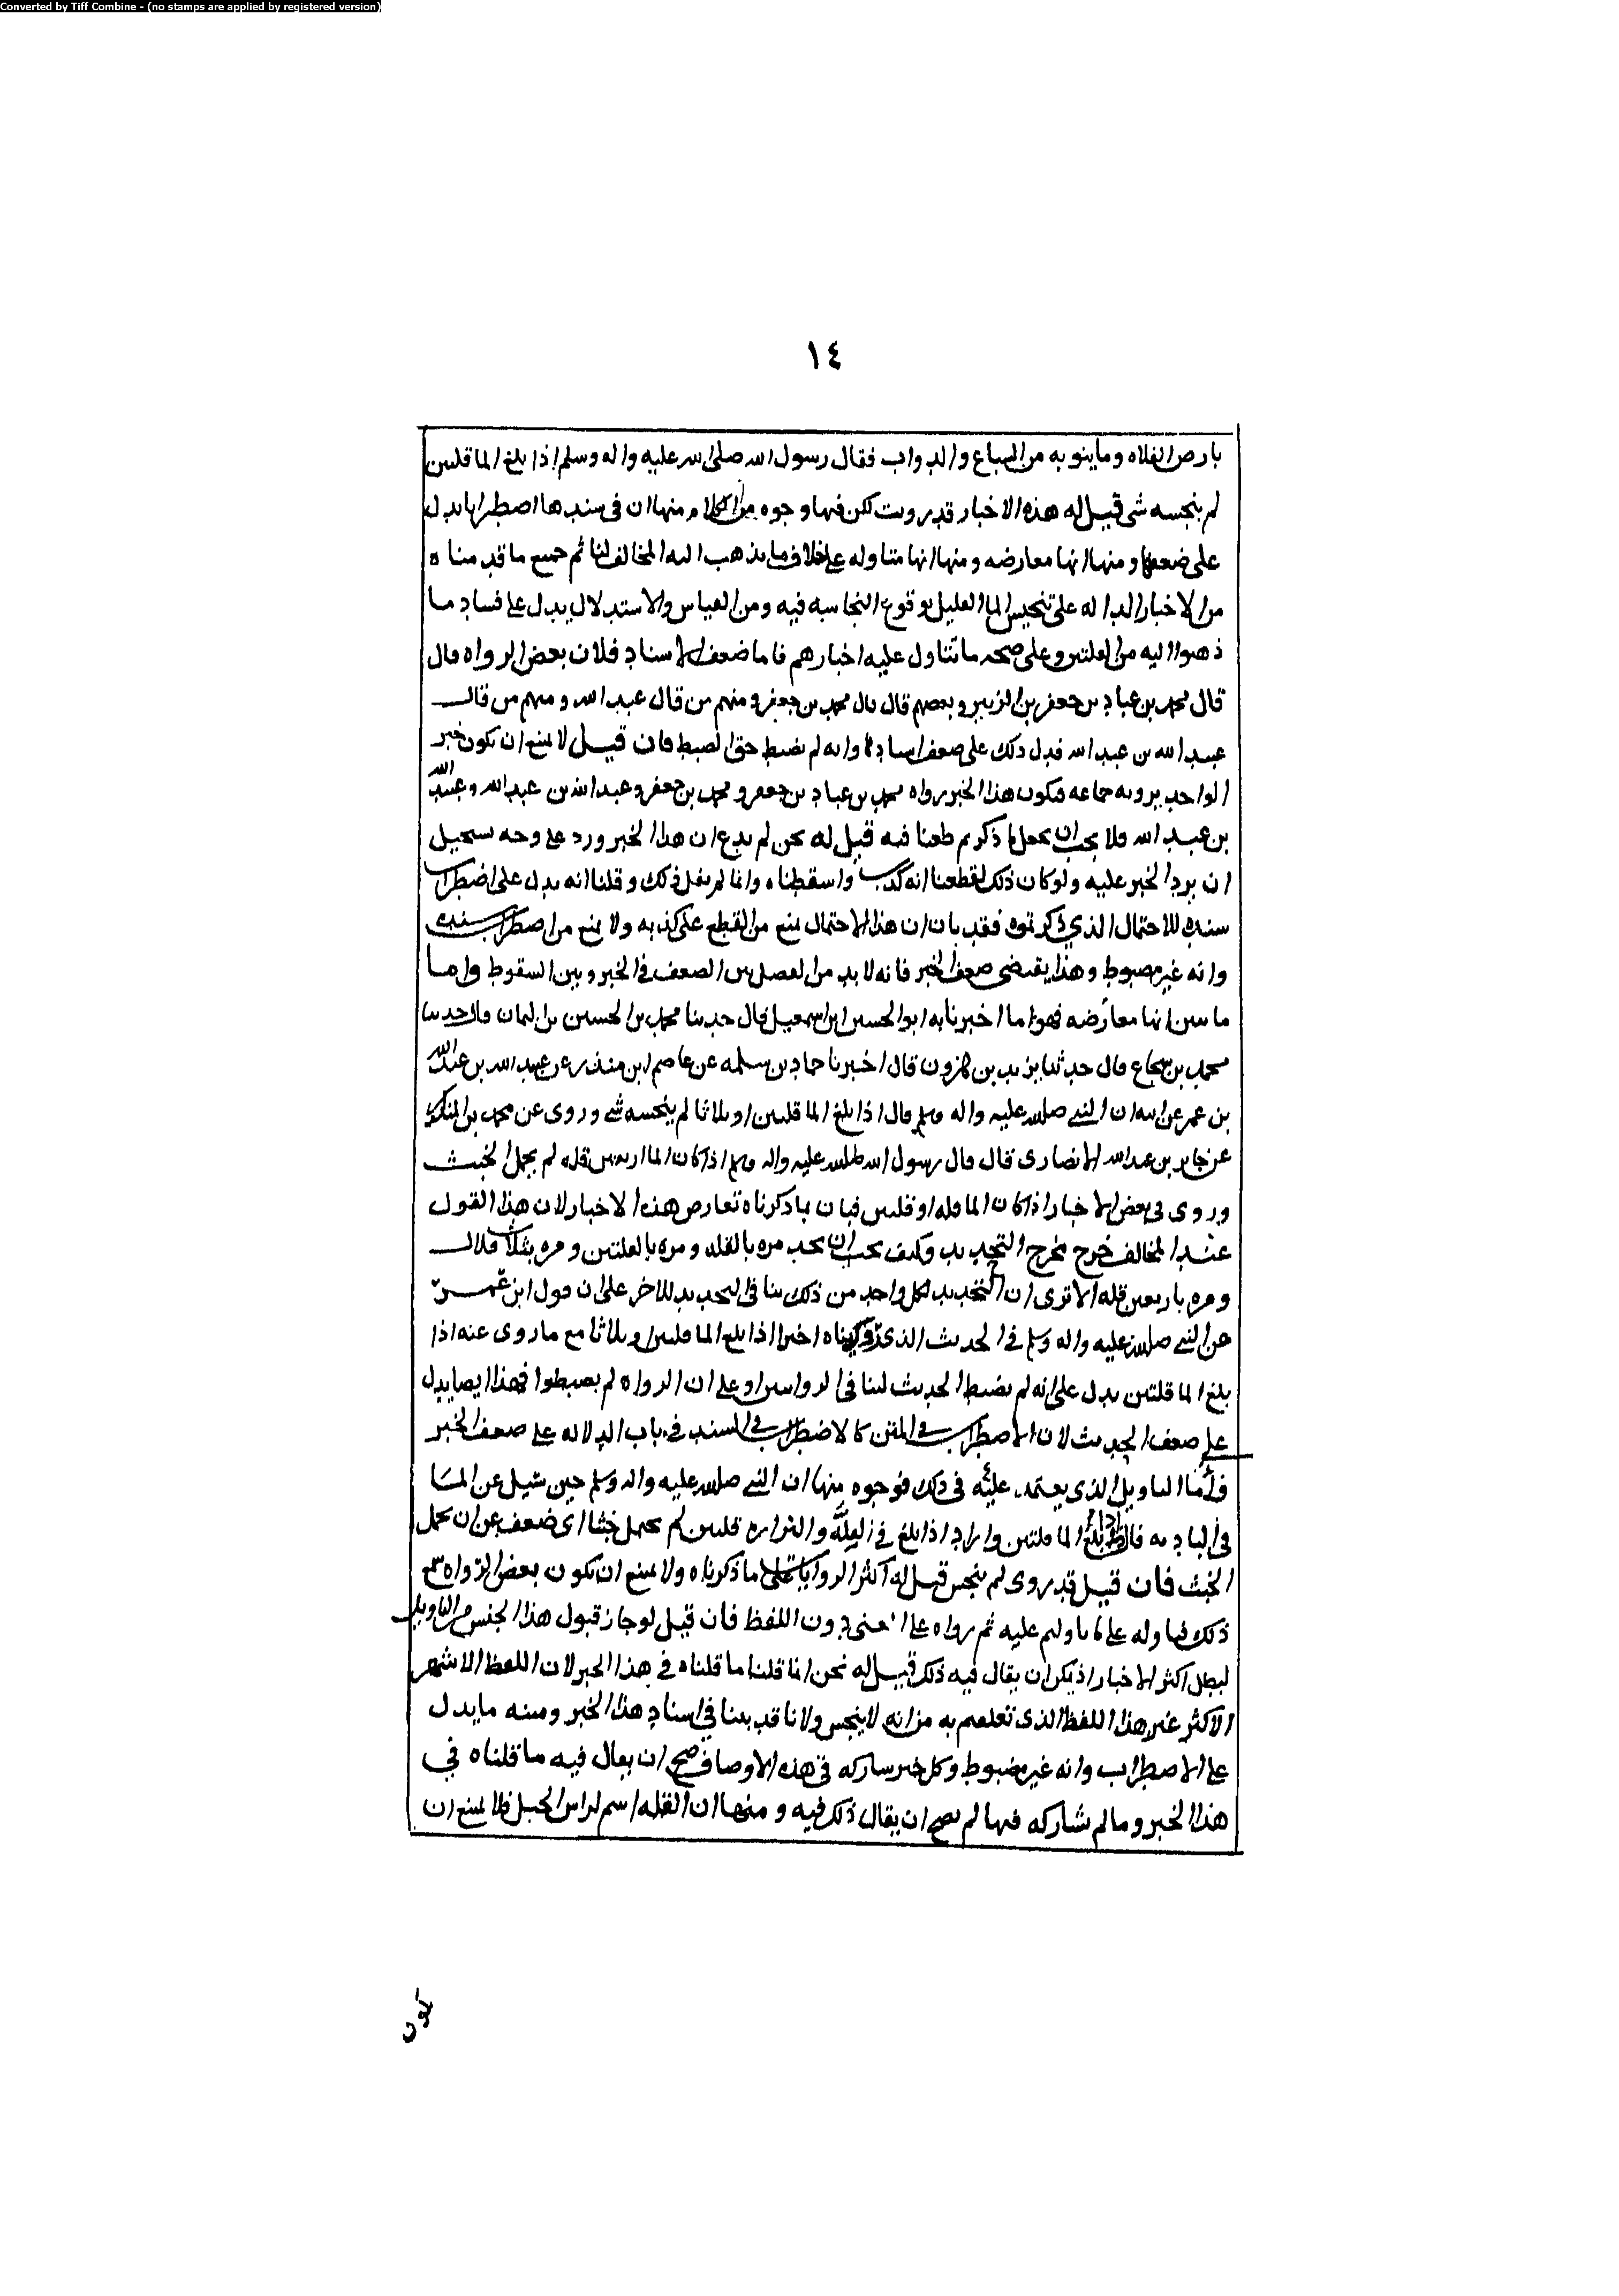 Converted by Tiff Combine - (no stamps are applied by registered version)
١٤
بارض الفلاه وما ينوبه من السباع والدواب فقال رسول الله صلى الله عليه واله وسلم اذا بلغ الما قلتين
لم ينجسه شي قيل له هذه الاخبار قد رويت لكن فيها وجوه من الكلام منها ان في سندها اضطرابا يدل
على ضعفها ومنها انها معارضه ومنها انها متاوله على خلاف ما يذهب اليه المخالف لنا ثم جميع ما قدمناه
من الاخبار الداله على تنجيس الما القليل بوقوع النجاسه فيه ومن القياس والاستدلال يدل على فساد ما
ذهبوا اليه من القلتين وعلى صحه ما نتاول عليه اخبارهم فاما ضعف الاسناد فلان بعض الرواه قال
قال محمد بن عباد بن جعفر بن الزبير وبعضهم قال قال محمد بن جعفر ومنهم من قال عبد الله ومنهم من قال
عبيد الله بن عبد الله فدل ذلك على ضعف اسادها وانه لم يضبط حق الضبط فان قيل لا يمنع ان يكون خبر
الواحد يرويه جماعه فيكون هذا الخبر رواه محمد بن عباد بن جعفر ومحمد بن جعفر وعبد الله بن عبد الله وعبيد الله
بن عبد الله فلا يجب ان يجعل ما ذكرتم طعنا فيه قيل له نحن لم ندع ان هذا الخبر ورد على وجه يستحيل
ان يرد الخبر عليه ولو كان ذلك لقطعنا انه كذب واسقطناه وانما لم نفعل ذلك وقلنا انه يدل على اضطراب
سنده للاحتمال الذي ذكرتموه فقد بان ان هذا الاحتمال يمنع من القطع على كذبه ولا يمنع من اضطراب سنده
وانه غير مضبوط وهذا يقتضي ضعف الخبر فانه لا بد من الفصل بين الضعف في الخبر وبين السقوط واما
ما يبين انها معارضه فهو ما اخبرنا به ابو الحسين ابن اسمعيل قال حدثنا محمد بن الحسين بن اليمان قال حدثنا
محمد بن شجاع قال حدثنا يزيد بن هرون قال اخبرنا حماد بن سلمه عن عاصم ابن منذر عن عبيد الله بن عبد الله
بن عمر عن ابيه ان النبي صلى الله عليه واله وسلم قال اذا بلغ الما قلتين او ثلاثا لم ينجسه شي وروى عن محمد بن المنكدر
عن جابر بن عبد الله الانصاري قال قال رسول الله صلى الله عليه واله وسلم اذا كان الما اربعين قله لم يحمل الخبث
وروى في بعض الاخبار اذا كان الما قله او قلتين فبان بما ذكرناه تعارض هذه الاخبار لان هذا القول
عند المخالف خرج مخرج التحديد وكيف يجب ان يحد مره بالقله ومره بالقلتين ومره بثلاث قلال
ومره باربعين قله الا ترى ان التحديد لكل واحد من ذلك ينافي التحديد للاخر على ان قول ابن عمر
عن النبي صلى الله عليه واله وسلم في الحديث الذي رويناه اخيرا اذا بلغ الما قلتين او ثلاثا مع ما روى عنه اذا
بلغ الما قلتين يدل على انه لم يضبط الحديث لنا في الروايتين او على ان الرواه لم يضبطوا فهذا ايضا يدل
على ضعف الحديث لان الاضطراب في المتن كالاضطراب في السند في باب الدلاله على ضعف الخبر
فاما التاويل الذي يعتمد عليه في ذلك فوجوه منها ان النبي صلى الله عليه واله وسلم حين سئل عن الما
في الباديه فقال اذا بلغ الما قلتين واراد اذا بلغ في القله والنزاره قلتين لم يحمل خبثا اي ضعف عن ان يحمل
الخبث فان قيل قد روى لم ينجس قيل له اكثر الروايات على ما ذكرناه ولا يمنع ان يكون بعض الرواه سمع
ذلك فتاوله على تاويلهم عليه ثم رواه على المعنى دون اللفظ فان قيل لو جاز قبول هذا الجنس من التاويل
لبطل اكثر الاخبار اذ يمكن ان يقال فيه ذلك قيل له نحن انما قلنا ما قلناه في هذا الخبر لان اللفظ الاشهر
الاكثر غير هذا اللفظ الذي تعلقتم به من انه لا ينجس ولانا قد بينا في اسناد هذا الخبر ومتنه ما يدل
على الاضطراب وانه غير مضبوط وكل خبر شاركه في هذه الاوصاف صح ان يقال فيه ما قلناه في
هذا الخبر وما لم يشاركه فيها لم يصح ان يقال ذلك فيه ومنها ان القله اسم لراس الجبل فلا يمنع ان
يكون